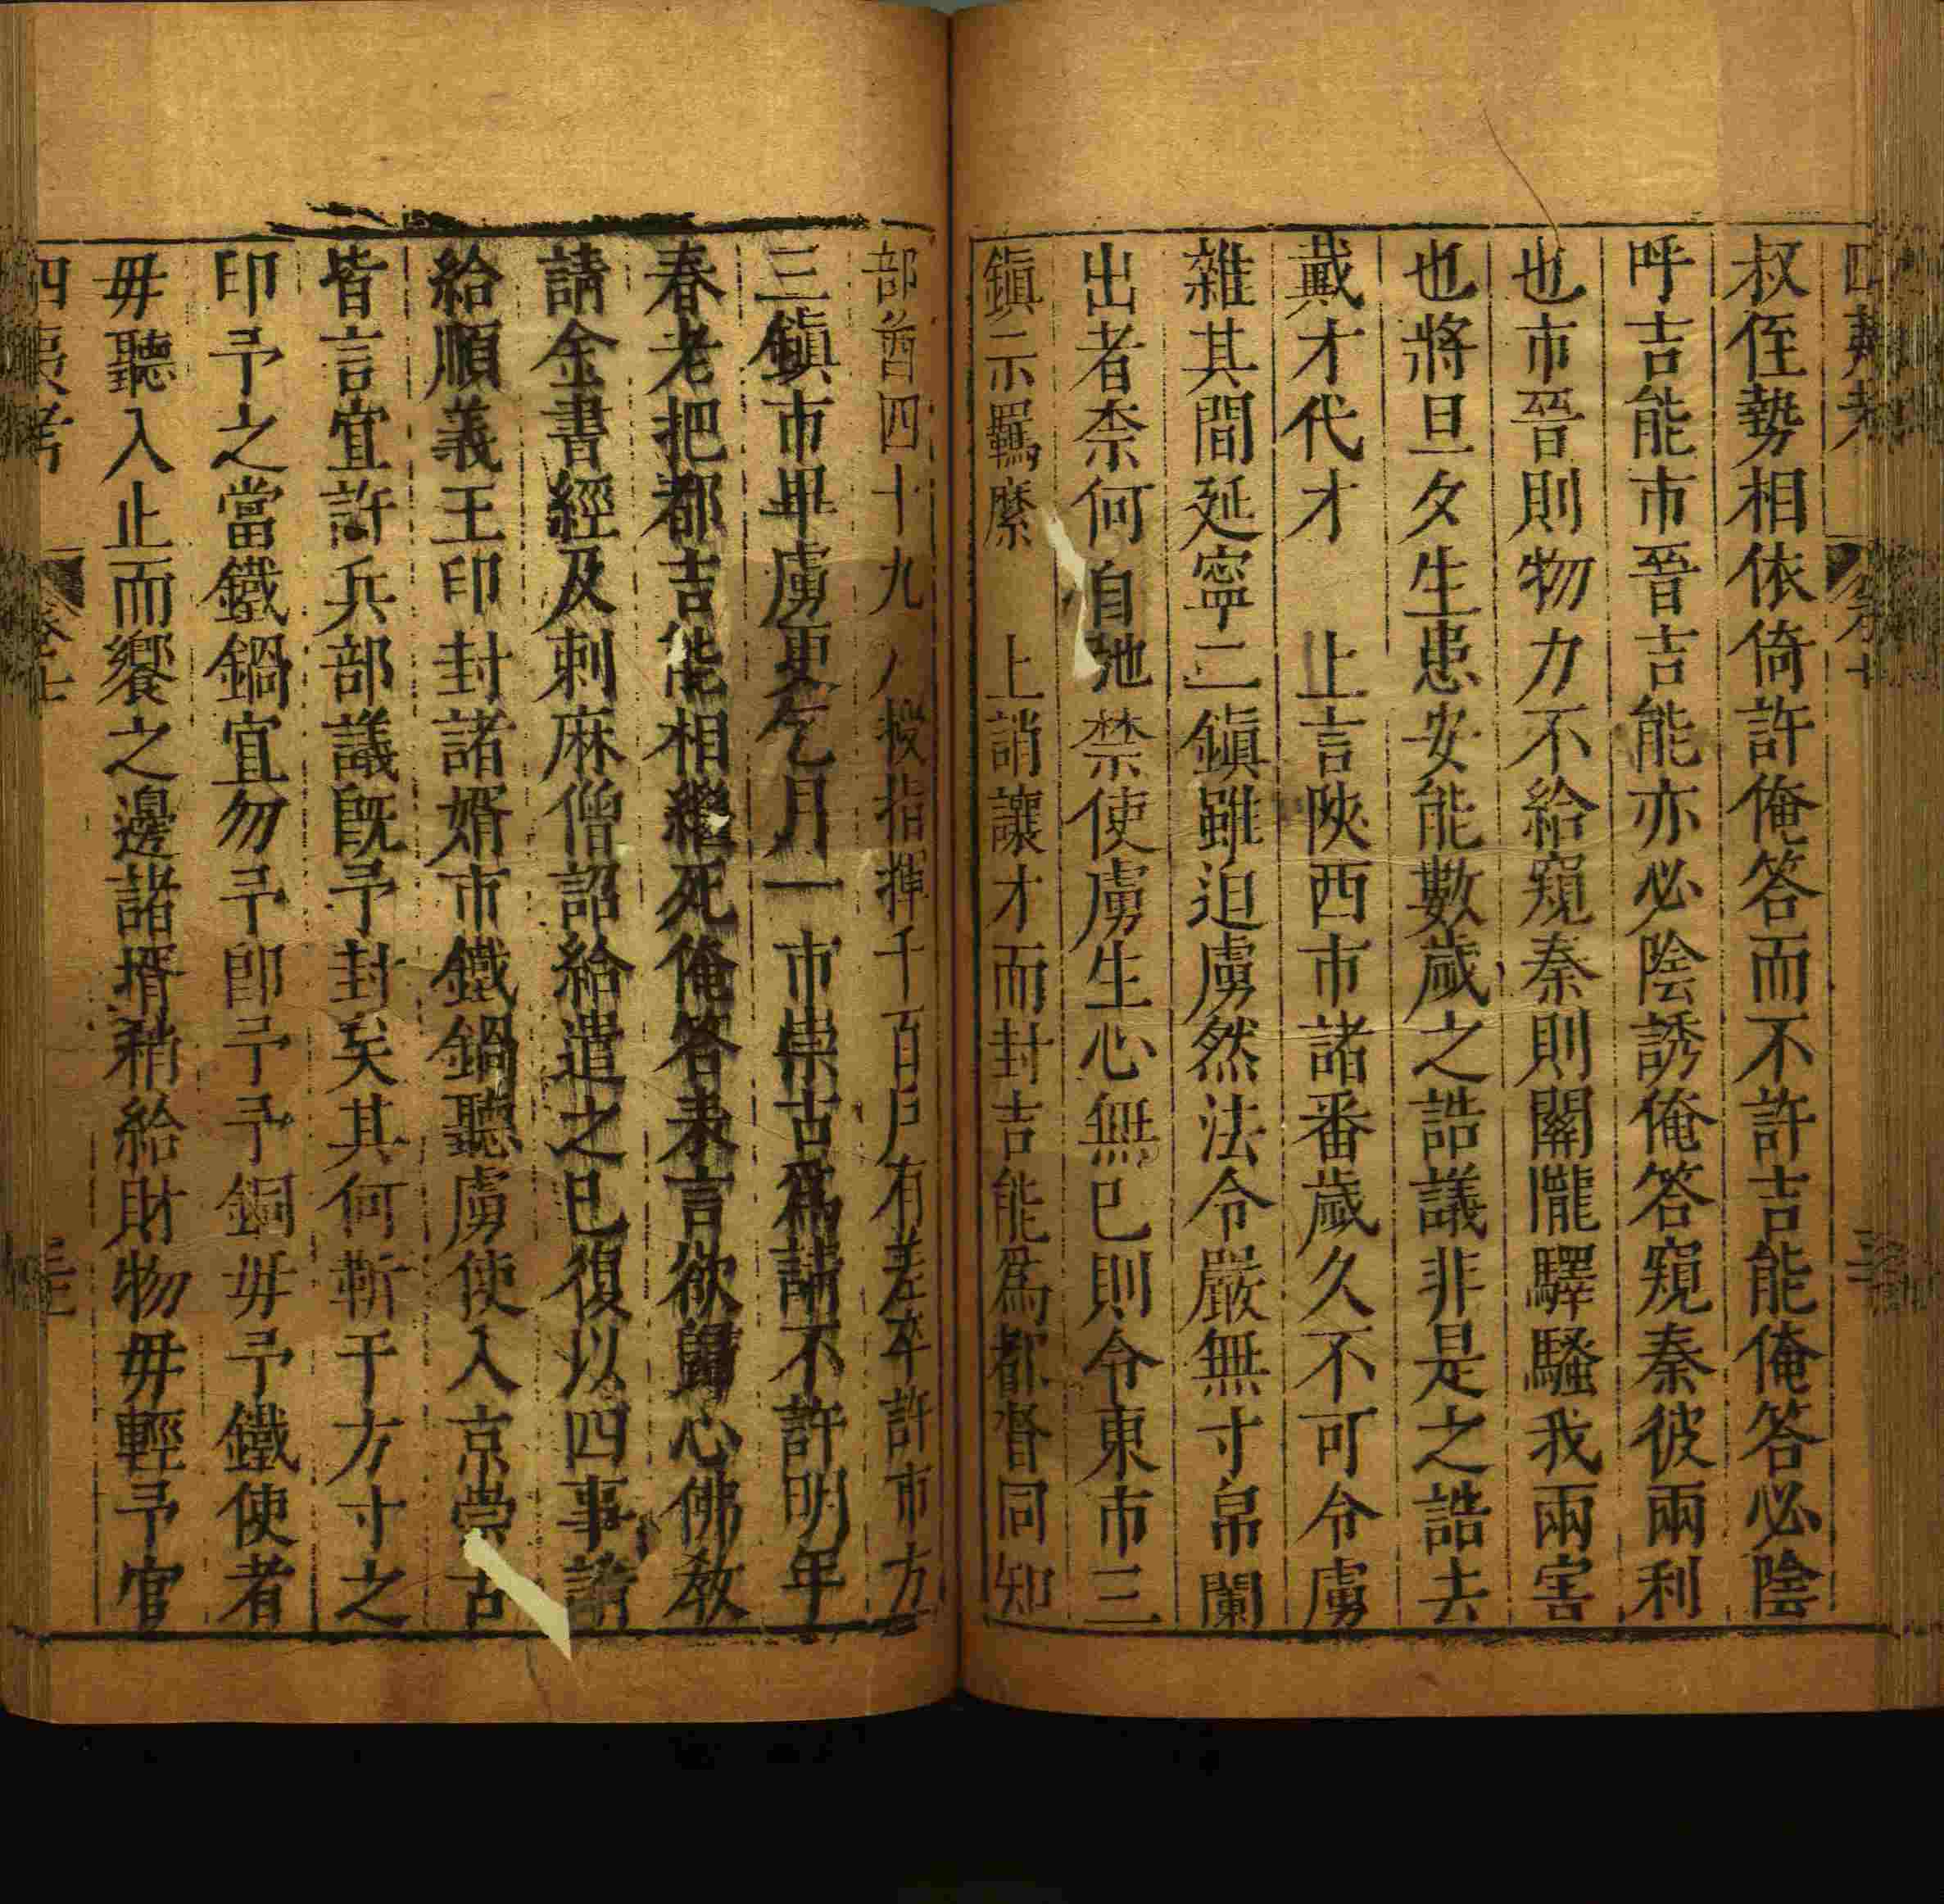 四夷考
卷七
叔侄勢相依倚許俺答而不許吉能俺答必陰
呼吉能市晉吉能亦必陰誘俺答窺秦彼兩利
也市晉則物力不給窺秦則關隴驛騷我兩害
也將旦夕生患安能數歲之誥議非是之誥去
戴才代才 上言陝西市諸番歲久不可令虜
雜其間延寧二鎮雖迫虜然法令嚴無寸帛闌
出者柰何自弛禁使虜生心無已則令東市三
鎮示羈縻 上誚讓才而封吉能為都督同知
部酋四十九人授指揮千百戶有差卒許市方
三鎮市畢虜更乞月一市崇古為請不許明年
春老把都吉能相繼死俺答表言欲歸心佛教
請金書經及剌麻僧詔給遣之已復以四事請
給順義王印封諸婿市鐵鍋聽虜使入京崇古
皆言宜許兵部議既予封矣其何靳于方寸之
印予之當鐵鍋宜勿予即予予銅毋予鐵使者
毋聽入止而饗之邊諸壻稍給財物毋輕予官
四夷考
卷七